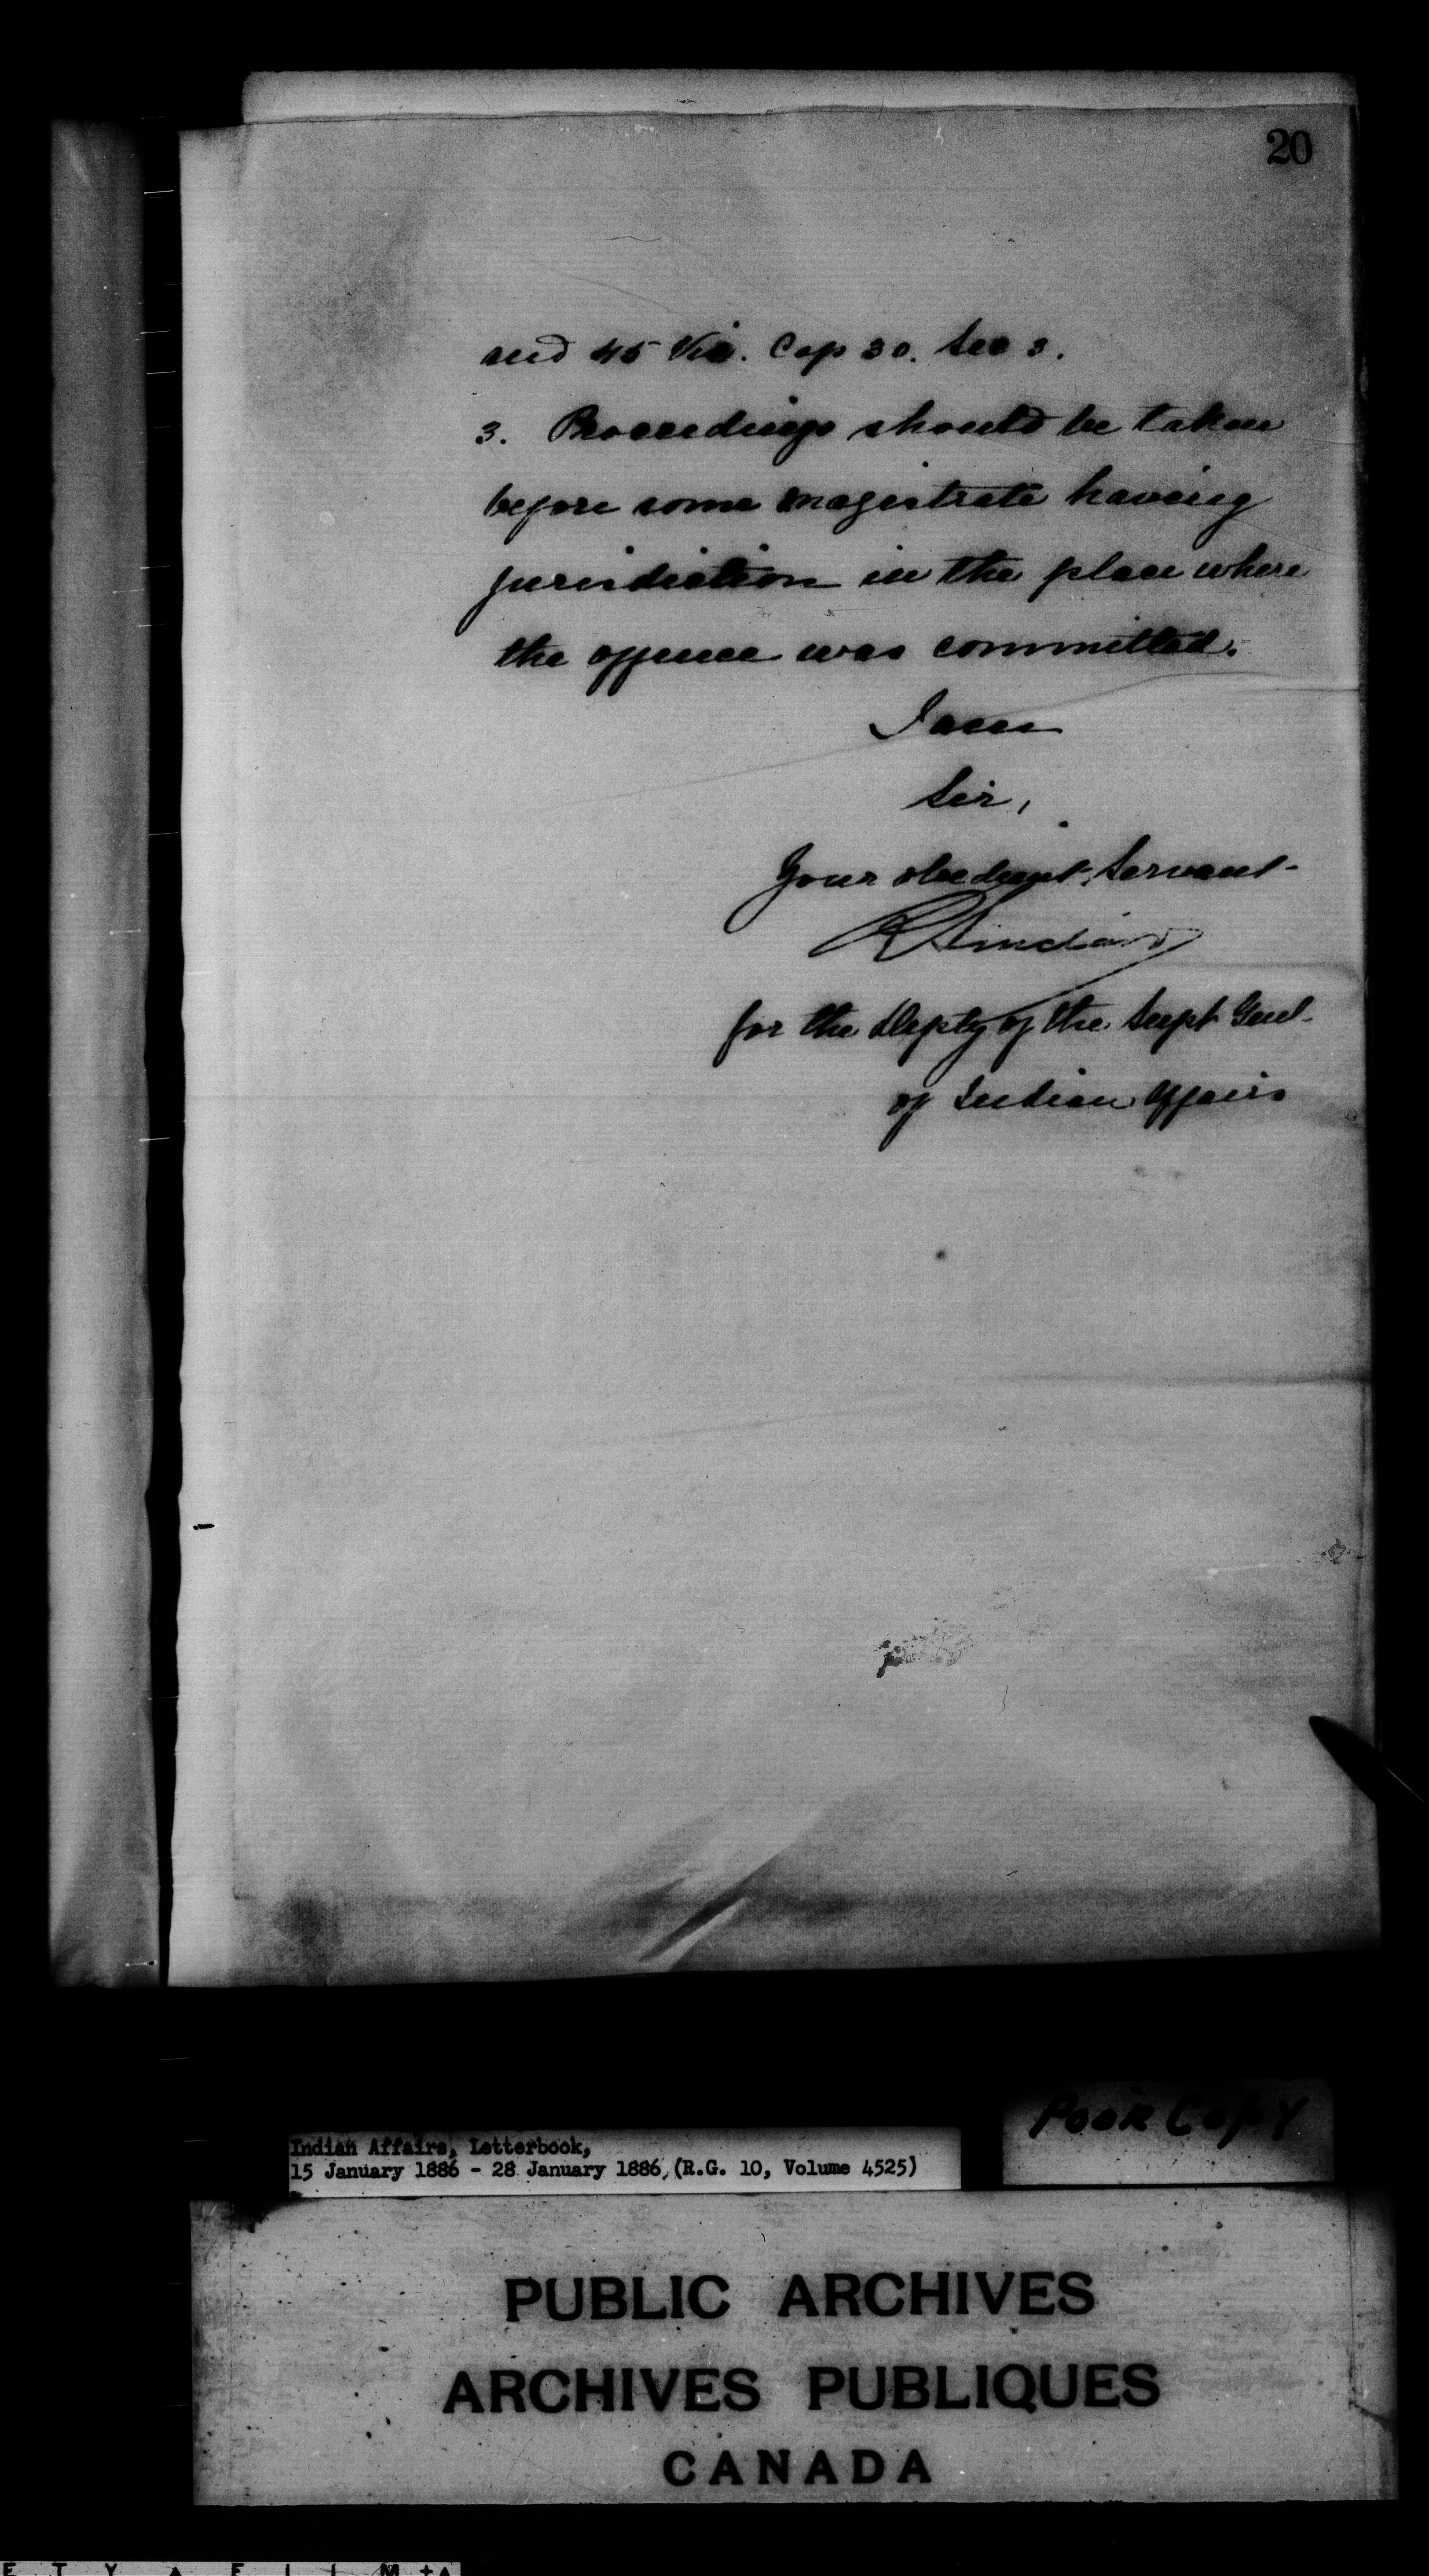 20
and 45 Vic. Cap 30. Sec 3.
3. Proceedings should be taken
before some magistrate having
jurisdiction in the place where
the offence was committed.
I am
Sir,
Your obedient Servant
R Sinclair
for the Depty of the Supt Genl
of Indian Affairs
Poor Copy
Indian Affairs, Letterbook,
15 January 1886 - 28 January 1886, (R.G. 10, Volume 4525)
PUBLIC ARCHIVES
ARCHIVES PUBLIQUES
CANADA